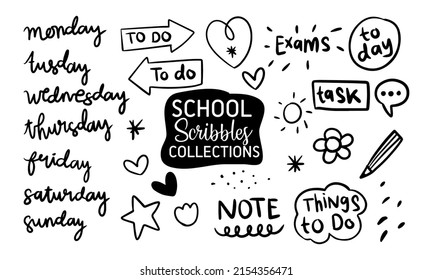 monday
tusday
wednesday
thursday
friday
saturday
sunday
TO DO
To do
Exams
to
day
task
SCHOOL
Scribbles
COLLECTIONS
NOTE
Things
to Do
shutterstock.com · 2154356471